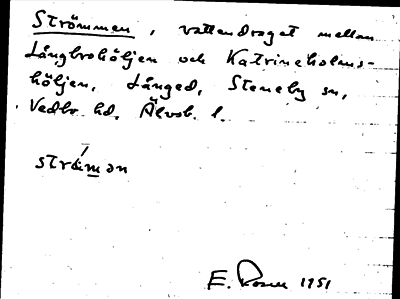 Strömmen, vattendraget mellan
Långbrohöljen och Katrineholms-
höljen, Långed, Steneby sn,
Vedbo hd, Älvsb. l.
strö́man
E. Rosell 1951